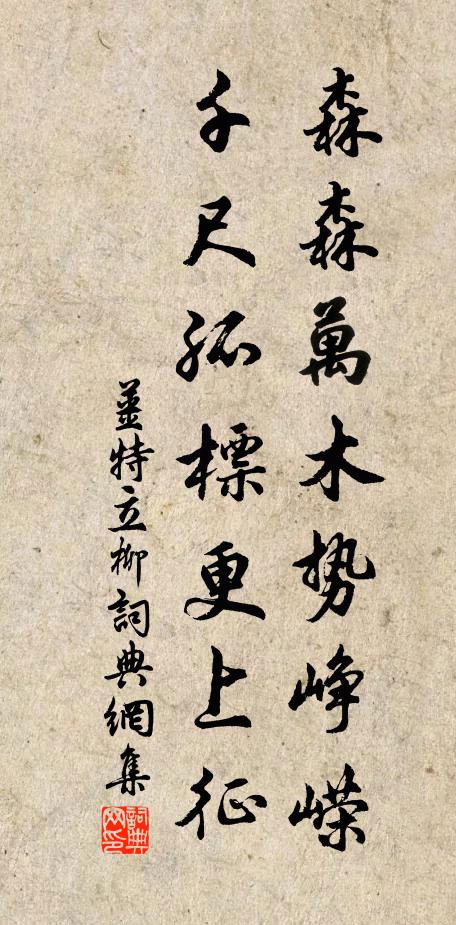 森森萬木勢崢嶸
千尺孤標更上征
薑特立柳詞典網集
詞典網印